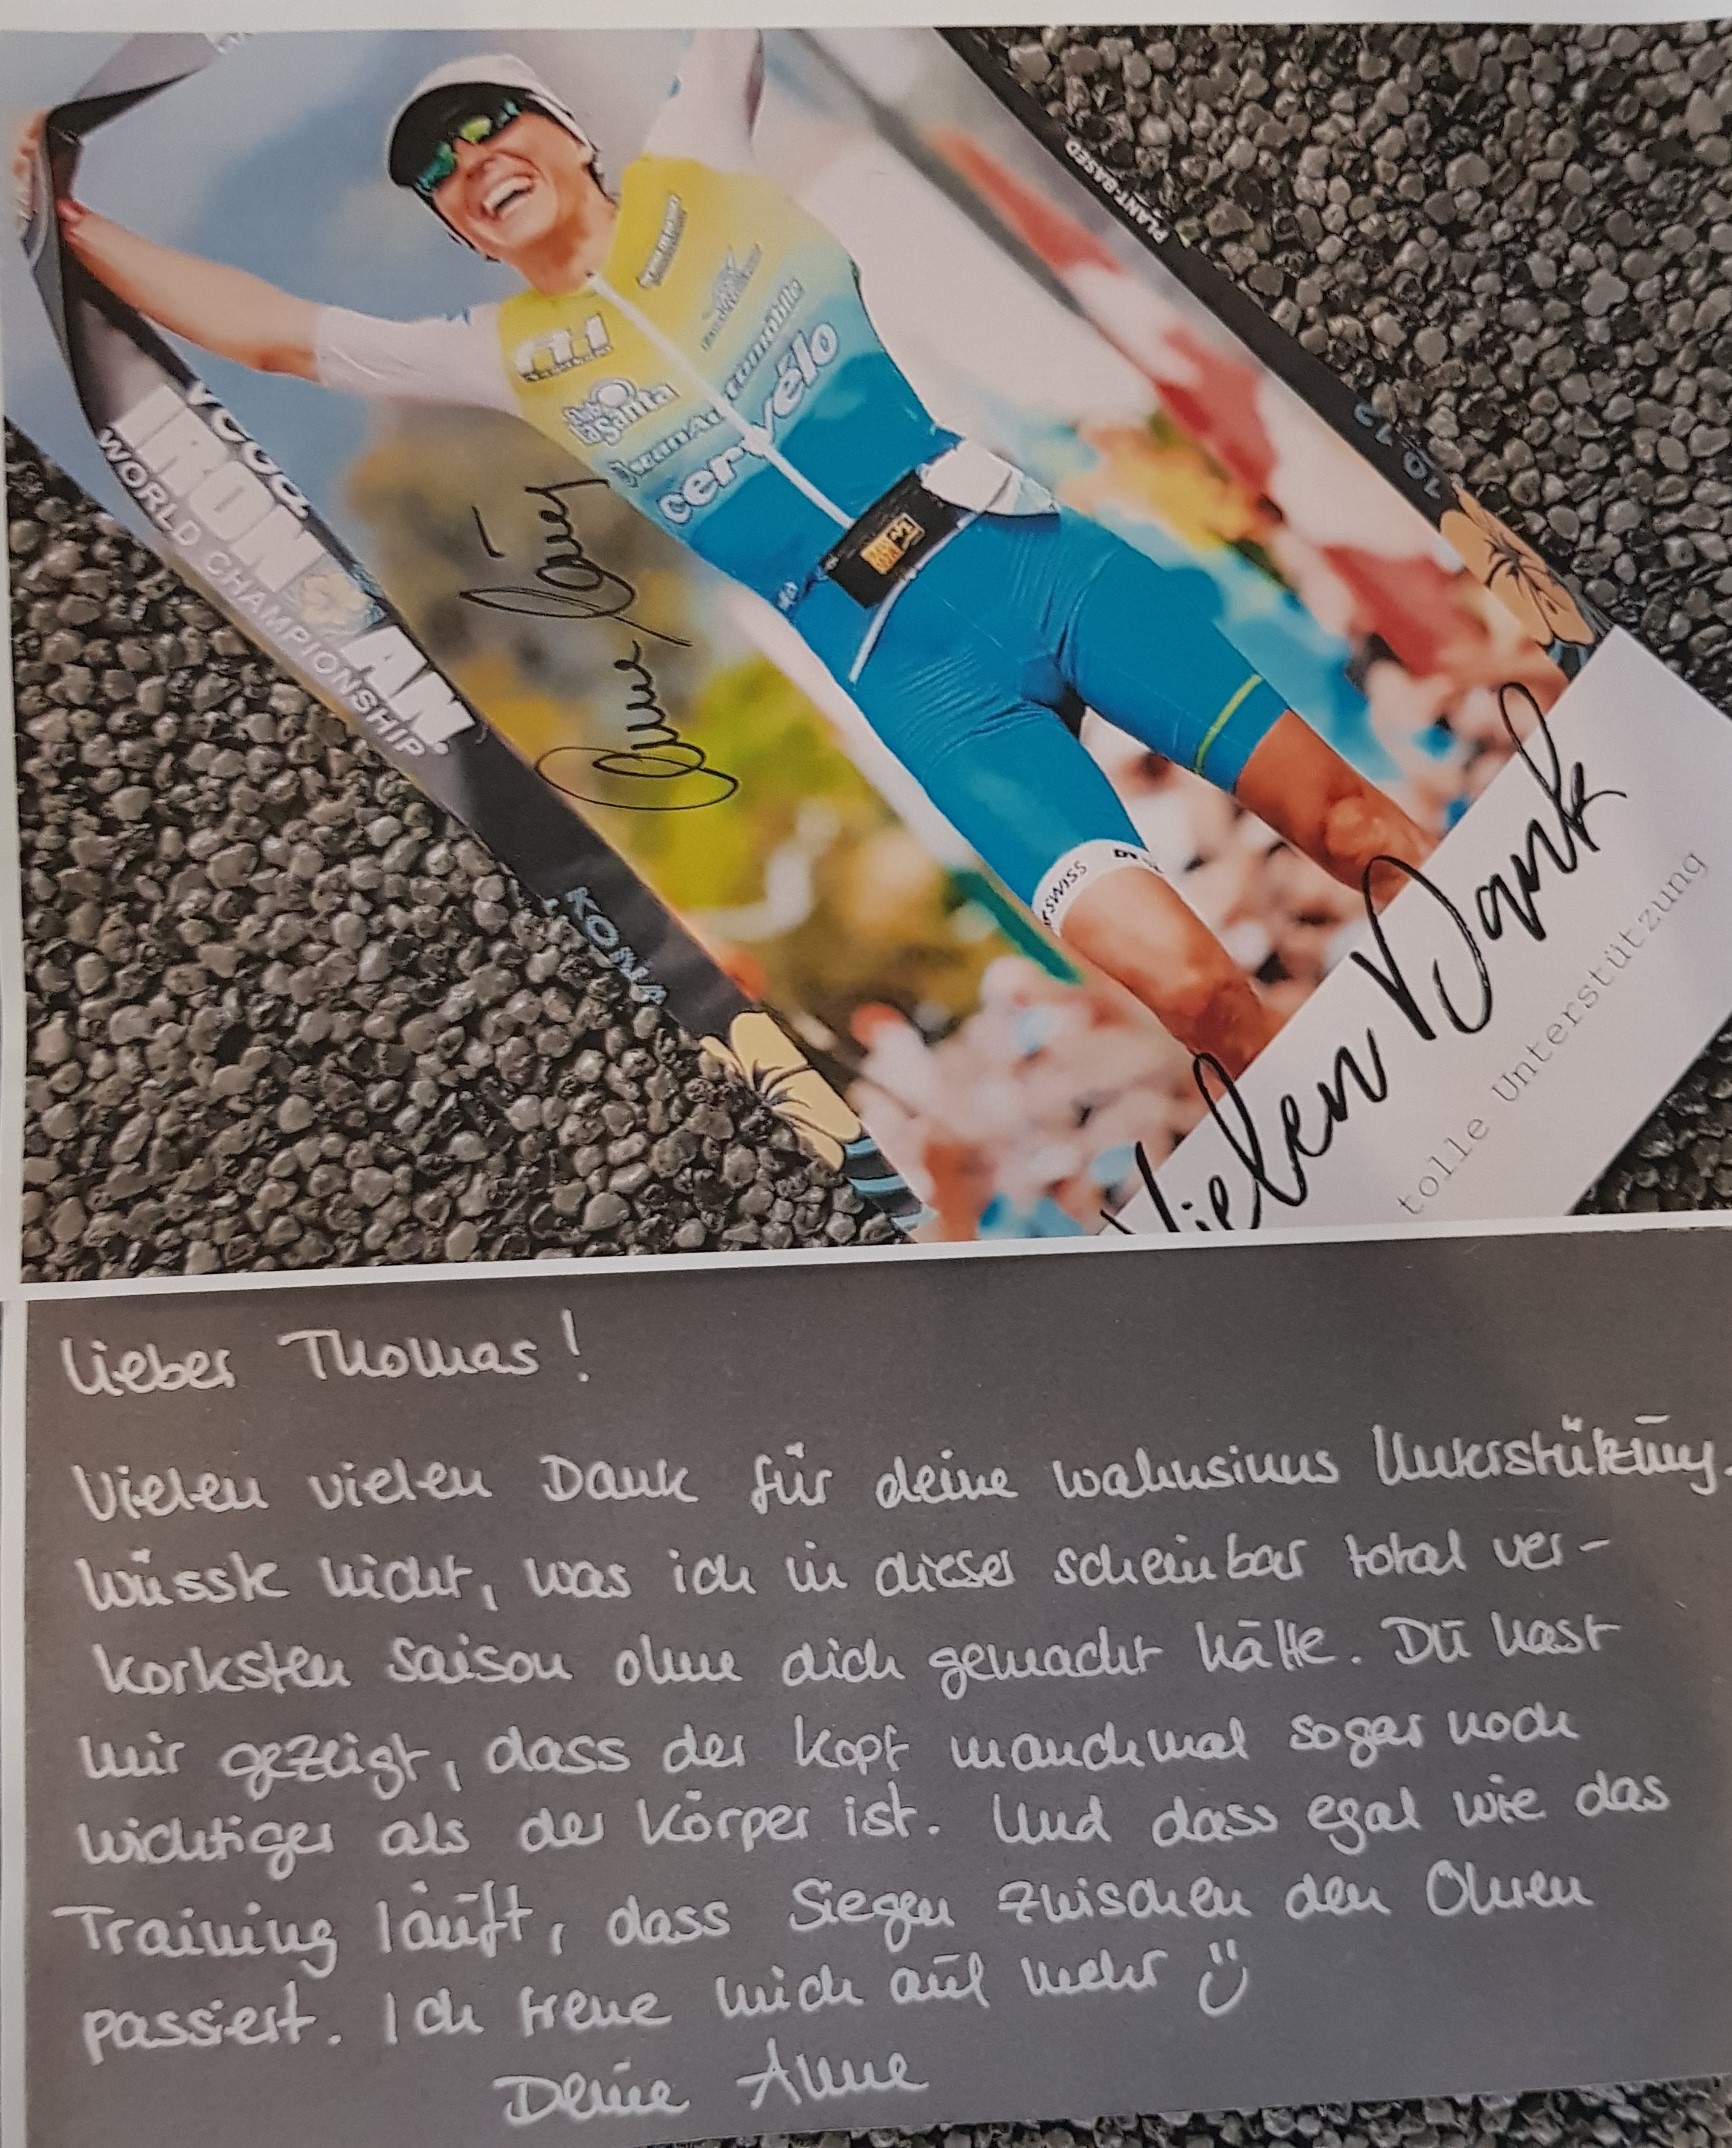 PLANT-BASED
cervélo
La Santa
Vega
IRONMAN
WORLD CHAMPIONSHIP
KONA
Anne Haug
Vielen Dank
tolle Unterstützung
Lieber Thomas!
Vielen vielen Dank für deine wahnsinns Unterstützung.
Wüsste nicht, was ich in dieser scheinbar total ver-
korksten Saison ohne dich gemacht hätte. Du hast
mir gezeigt, dass der Kopf manchmal sogar noch
wichtiger als der Körper ist. Und dass egal wie das
Training läuft, dass Siegen zwischen den Ohren
passiert. Ich freue mich auf mehr
Deine Anne